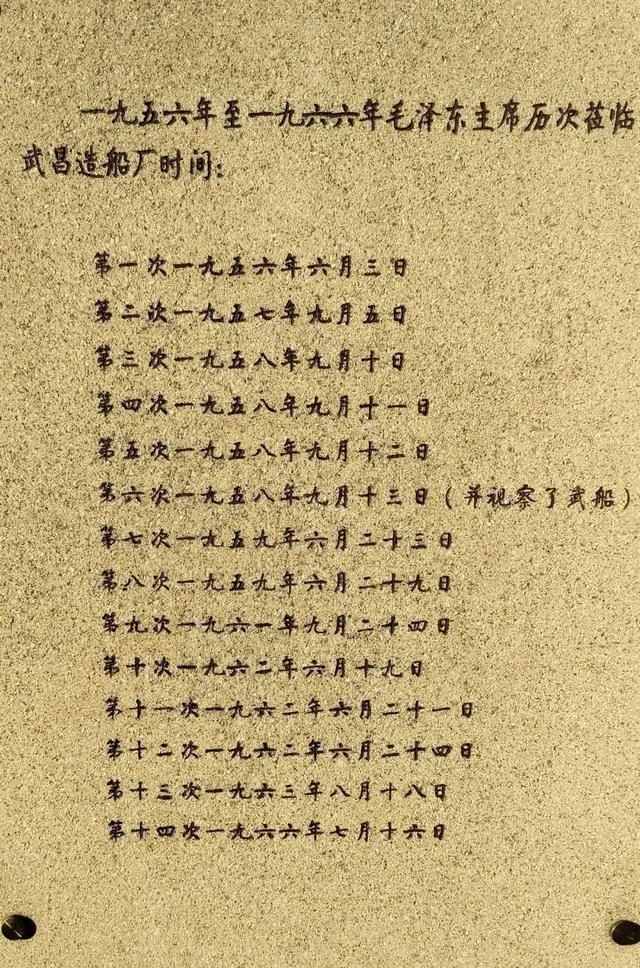 一九五六年至一九六六年毛泽东主席历次莅临
武昌造船厂时间：
第一次一九五六年六月三日
第二次一九五七年九月五日
第三次一九五八年九月十日
第四次一九五八年九月十一日
第五次一九五八年九月十二日
第六次一九五八年九月十三日（并视察了武船）
第七次一九五九年六月二十三日
第八次一九五九年六月二十九日
第九次一九六一年九月二十四日
第十次一九六二年六月十九日
第十一次一九六二年六月二十一日
第十二次一九六二年六月二十四日
第十三次一九六三年八月十八日
第十四次一九六六年七月十六日